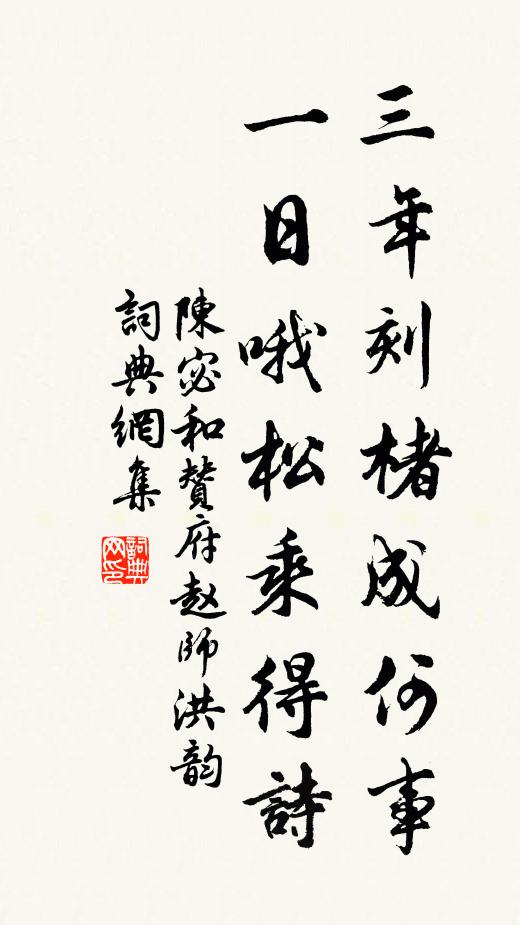 三年刻楮成何事
一日哦松乘得詩
陳宓和贊府赵師洪韵
詞典網集
詞典网印